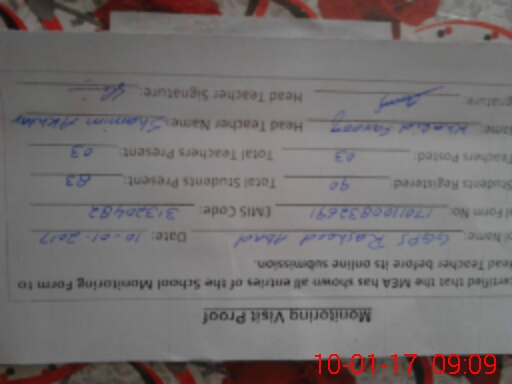 Monitoring Visit Proof
certified that the MEA has shown all entries of the School Monitoring Form to
Head Teacher before its online submission.
ol Name: GGPS Rasheed Abad Date: 10-01-2017
ol Form No: 1701100832691 EMIS Code: 31320482
Students Registered: 90 Total Students Present: 83
Teachers Posted: 03 Total Teachers Present: 03
ame: Khalid Farooq Head Teacher Name: Shamim Akhtar
gnature: Head Teacher Signature:
10-01-17 09:09